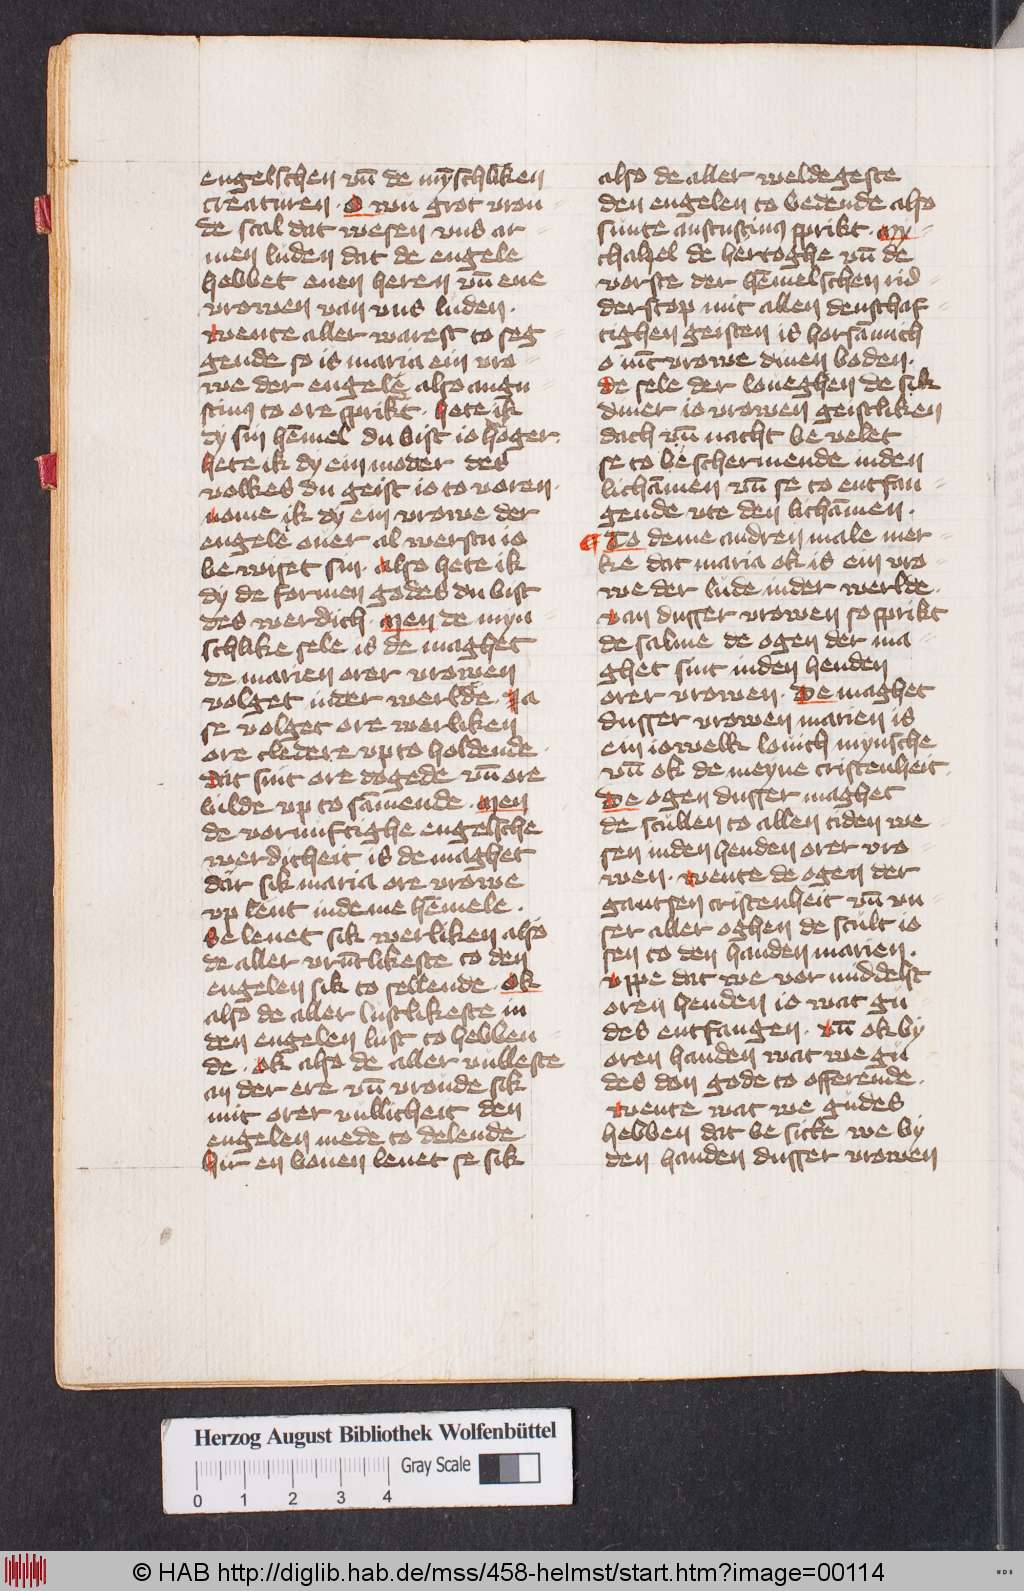 engelschen vn̄ de mȳschliken
creaturen · O wu grot vrou-
de scal dat wesen vns ar-
men luden dat de engele
hebbet enen heren vn̄ ene
vrowen van vns luden ·
wente aller warest to seg-
gende so is maria ein vro-
we der engele also augu-
stinus to ore sprikt · hete ik
dy sin hēmel du bist io hoger ·
hete ik dy ein moder des
volkes du geist io to voren ·
nome ik dy ein vrowe der
engele ouer al werstu io
be wiset sin · also hete ik
dy de formen godes du bist
des werdich · Men de myn-
schlike sele is de maghet
de marien orer vrowen
volget in der werlde · Ja
se volget ore werliken
ore cledere vp to holdende ·
dat sint ore dogede vn̄ ore
bilde vp to sāmende · Men
de vornuftighe engelsche
werdicheit is de maghet
dar sik maria ore vrowe
vp lent in deme hēmele ·
Se lenet sik werliken also
de aller vrūtlikeste to den
engelen sik to sellende · Ok
also de aller lustlikeste in
den engelen lust to hebben-
de · ok also de aller vulleste
an der ere vn̄ vroude sik
mit orer vullicheit den
engelen mede to delende
hir en bouen lenet se sik
also de aller weldegeste
den engelen to bedende also
sunte austustinus sprikt · My-
chahel de hertoghe vn̄ de
vorste der hēmelschen rid-
derscop mit allen denschaf-
tighen geisten is horsāmich
o mīt vrowe dinen boden ·
de sele der loueghen de sik
diner io vrowen geistliken
dach vn̄ nacht be velet
se to be schermende in den
lichāmen vn̄ se to entfan-
gende vte den lichāmen ·
To deme andren male mer-
ke dat maria ok is ein vro-
we der lude in der werlde ·
van dusser vrowen so sprikt
de salme de ogen der ma-
ghet sint in den henden
orer vrowen · De maghet
dusser vrowen marien is
ein iowelk louich mynsche
vn̄ ok de meyne cristenheit ·
De ogen dusser maghet
de scullen to allen tiden we-
sen in den henden orer vro-
wen · wente de ogen der
gantsen cristenheit vn̄ vn-
ser aller oghen de scult io
sen to den handen marien ·
vppe dat we vor middelst
oren henden io wat gu-
des entfangen · vn̄ ok by
oren handen wat we gu-
des don gode to offerende ·
wente wat we gudes
hebben dat be sitte we by
den handen dusser vrowen
Herzog August Bibliothek Wolfenbüttel
Gray Scale
0 1 2 3 4
© HAB http://diglib.hab.de/mss/458-helmst/start.htm?image=00114